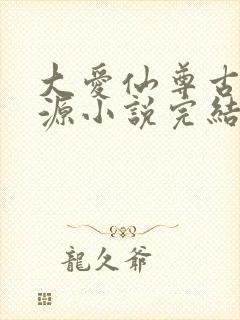 大愛仙尊古
源小說完結
龍久爺